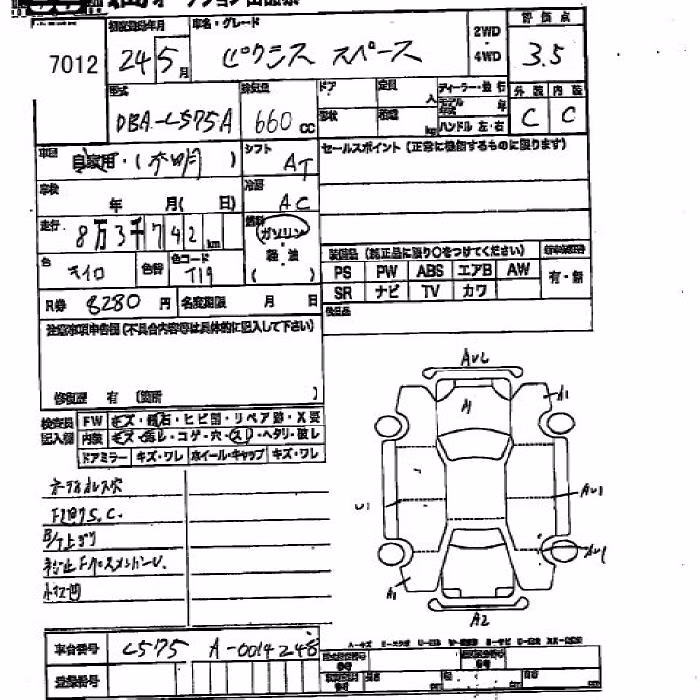 7012
初度登録年月 24 5月
車名・グレード ピクシス スペース
2WD・4WD
評価点 3.5
型式 DBA-L575A
排気量 660 cc
ドア 形状
定員 人 積載 kg
ディーラー・並行
モデル年式 年
ハンドル 左・右
外装 C 内装 C
車歴 自家用・( 不明 )
シフト AT
セールスポイント (正常に機能するものに限ります)
車検 年 月( 日)
冷房 AC
走行 8万3千742 km
燃料 ガソリン・軽油 ( )
色 キイロ 色替 色コード T19
装備品 (純正品に限り○をつけてください)
PS PW ABS エアB AW
SR ナビ TV カワ
有・無
後日品
R券 8280 円 名変期限 月 日
注意事項申告欄 (不具合内容等は具体的に記入して下さい)
修復歴 有 (箇所 )
検査員記入欄
FW キズ・飛石・ヒビ割・リペア跡・X要
内装 キズ・汚レ・コゲ・穴・スレ・ヘタリ・破レ
ドアミラー キズ・ワレ ホイール・キャップ キズ・ワレ
AU2
A
A1
U1
AU1
AU1
A1
A2
車台番号 L575 A-0014248
登録番号